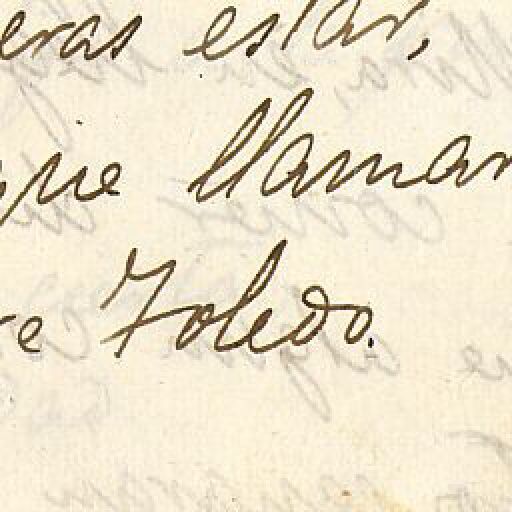 eras estar,
que llaman
re Toledo.